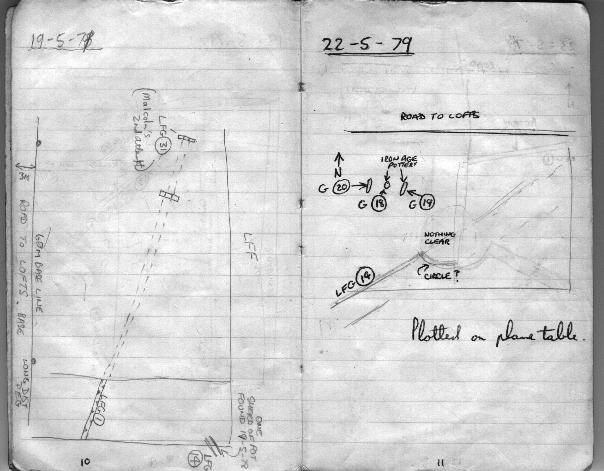 19-5-79
LFG (31)
(Malcolm's
2nd
LFF
60M BASE LINE
ROAD TO LOFTS. BASE
LFG 1
ONE
SHERD OF POT
FOUND 19-5-79
LFG (14)
10
22-5-79
ROAD TO LOFTS
IRON AGE
POTTERY
N
G (20)
G (18)
G (19)
NOTHING
CLEAR
LFG (14)
CIRCLE?
Plotted on plane table.
11